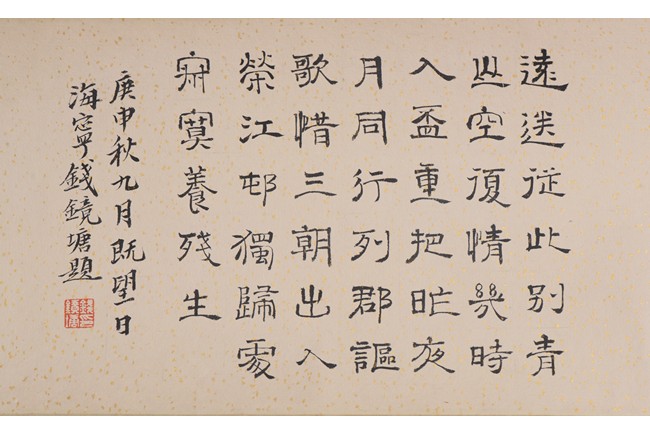 遠送従此別青
山空復情幾時
入盃重把昨夜
月同行列郡謳
歌惜三朝出入
榮江邨獨歸處
寂寞養殘生
庚申秋九月既望日
海寧錢鏡塘題